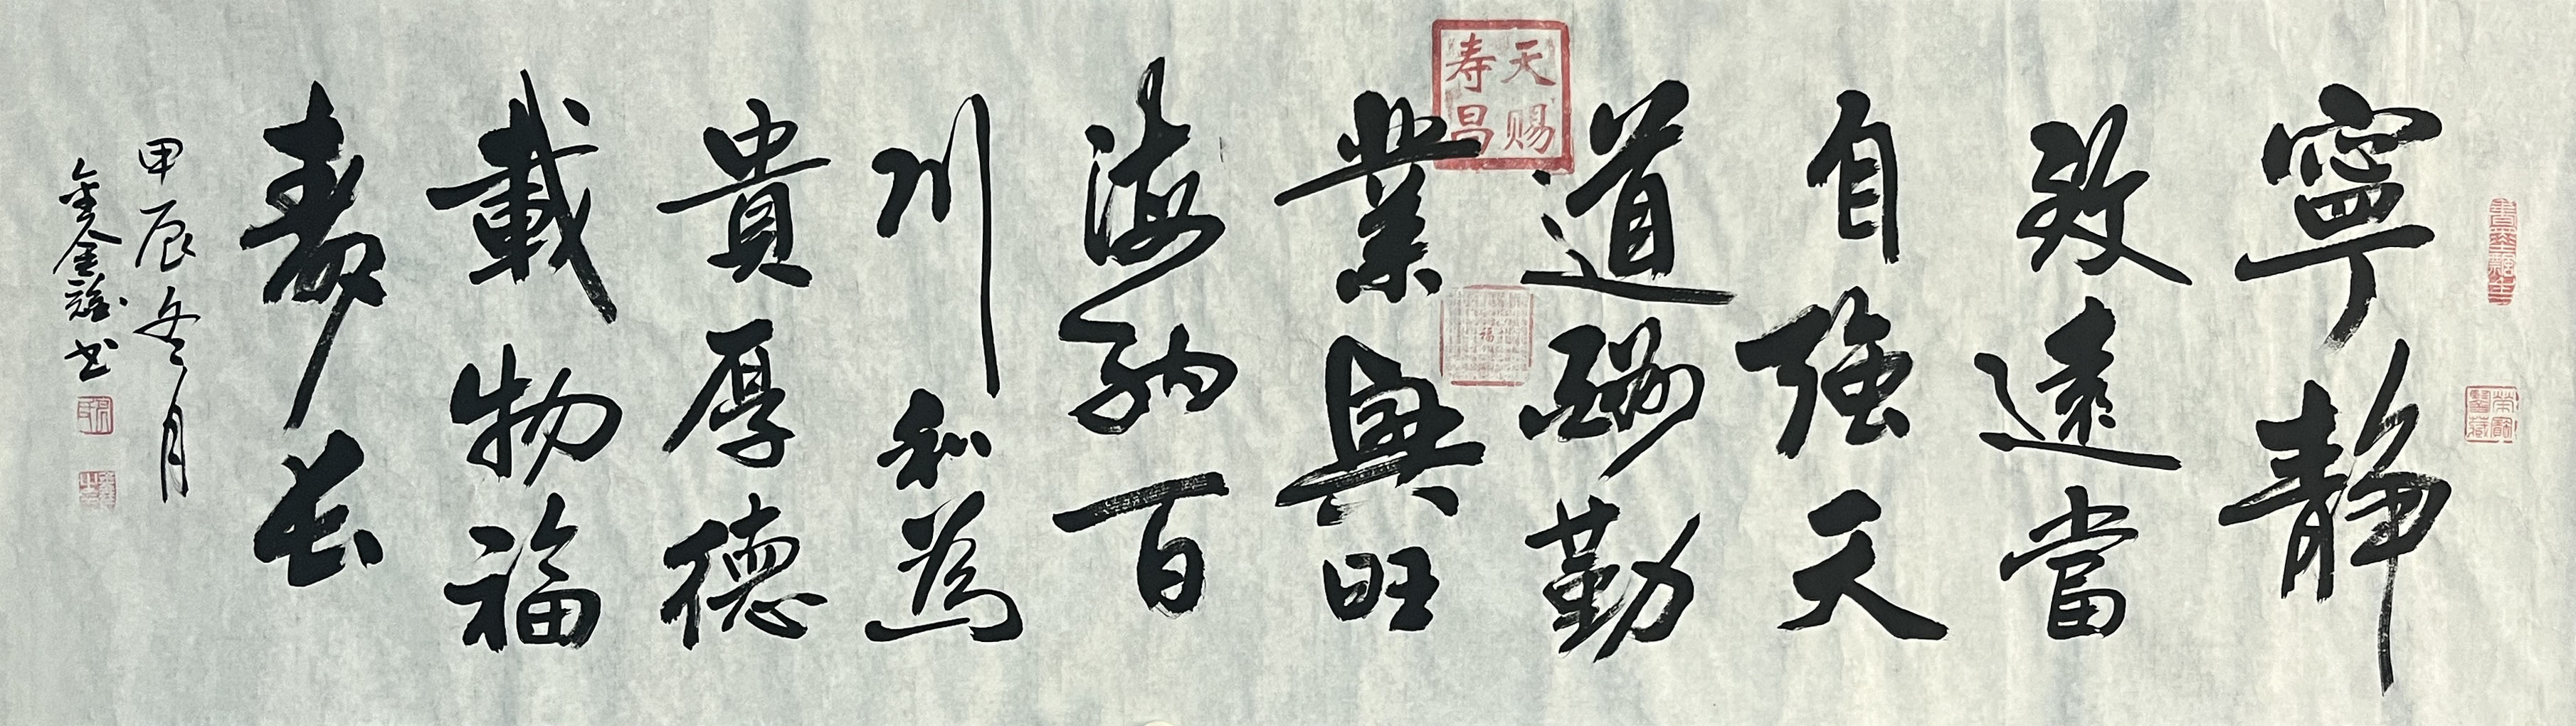 寧靜
致遠當
自強天
道酬勤
業興旺
海納百
川和為
貴厚德
載物福
壽長
甲辰冬月
書
天赐
寿昌
福